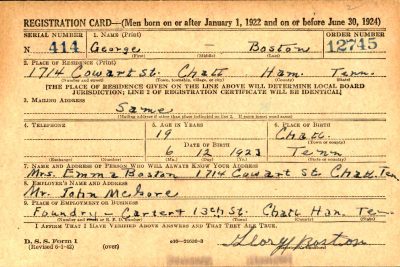 REGISTRATION CARD—(Men born on or after January 1, 1922 and on or before June 30, 1924)
SERIAL NUMBER 1. NAME (Print) ORDER NUMBER
N 414 George — Boston 12745
(First) (Middle) (Last)
2. PLACE OF RESIDENCE (Print)
1714 Cowart St. Chatt Ham. Tenn.
(Number and street) (Town, township, village, or city) (County) (State)
[THE PLACE OF RESIDENCE GIVEN ON THE LINE ABOVE WILL DETERMINE LOCAL BOARD
JURISDICTION; LINE 2 OF REGISTRATION CERTIFICATE WILL BE IDENTICAL]
3. MAILING ADDRESS
Same
[Mailing address if other than place indicated on line 2. If same insert word same]
4. TELEPHONE 5. AGE IN YEARS 6. PLACE OF BIRTH
19 Chatt.
DATE OF BIRTH (Town or county)
6 12 1923 Tenn
(Exchange) (Number) (Mo.) (Day) (Yr.) (State or country)
7. NAME AND ADDRESS OF PERSON WHO WILL ALWAYS KNOW YOUR ADDRESS
Mrs. Emma Boston 1714 Cowart St. Chatt. Ten
8. EMPLOYER'S NAME AND ADDRESS
Mr. John
9. PLACE OF EMPLOYMENT OR BUSINESS
Foundry — Carter & 13th St. Chatt Ham. Ten
(Number and street or R. F. D. number) (Town) (County) (State)
I AFFIRM THAT I HAVE VERIFIED ABOVE ANSWERS AND THAT THEY ARE TRUE.
D. S. S. Form 1
(Revised 6-1-42) (over) George Boston
(Registrant's signature)